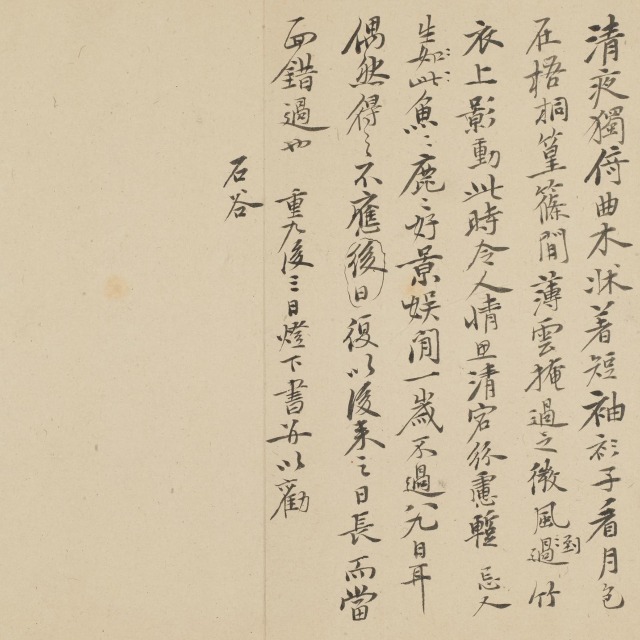 清夜獨俯曲木牀着短袖衫子看月色
在梧桐篁篠間薄雲掩過之微風過竹
衣上影動此時令人情思清宕紛慮暫忘人
生如此魚〻鹿〻好景娛閒一歲不過八九日耳
偶然得〻不應後日復以後来之日長而當
面錯過也 重九後三日燈下書并以勸
石谷